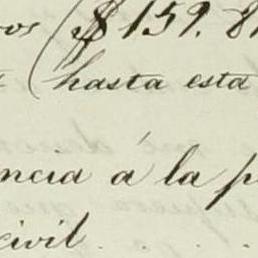 os ($159.8
(hasta esta
ncia á la p
civil.